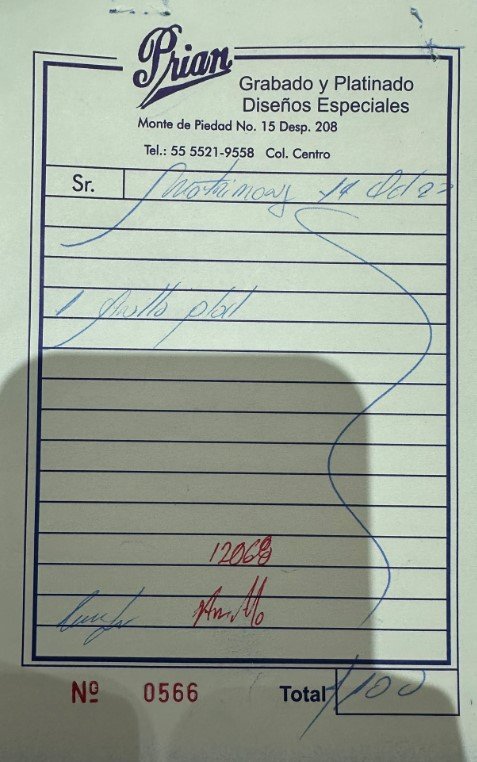 Prian
Grabado y Platinado
Diseños Especiales
Monte de Piedad No. 15 Desp. 208
Tel.: 55 5521-9558 Col. Centro
Sr.
1 Anillo plat
12068
Anillo
Nº 0566 Total 100